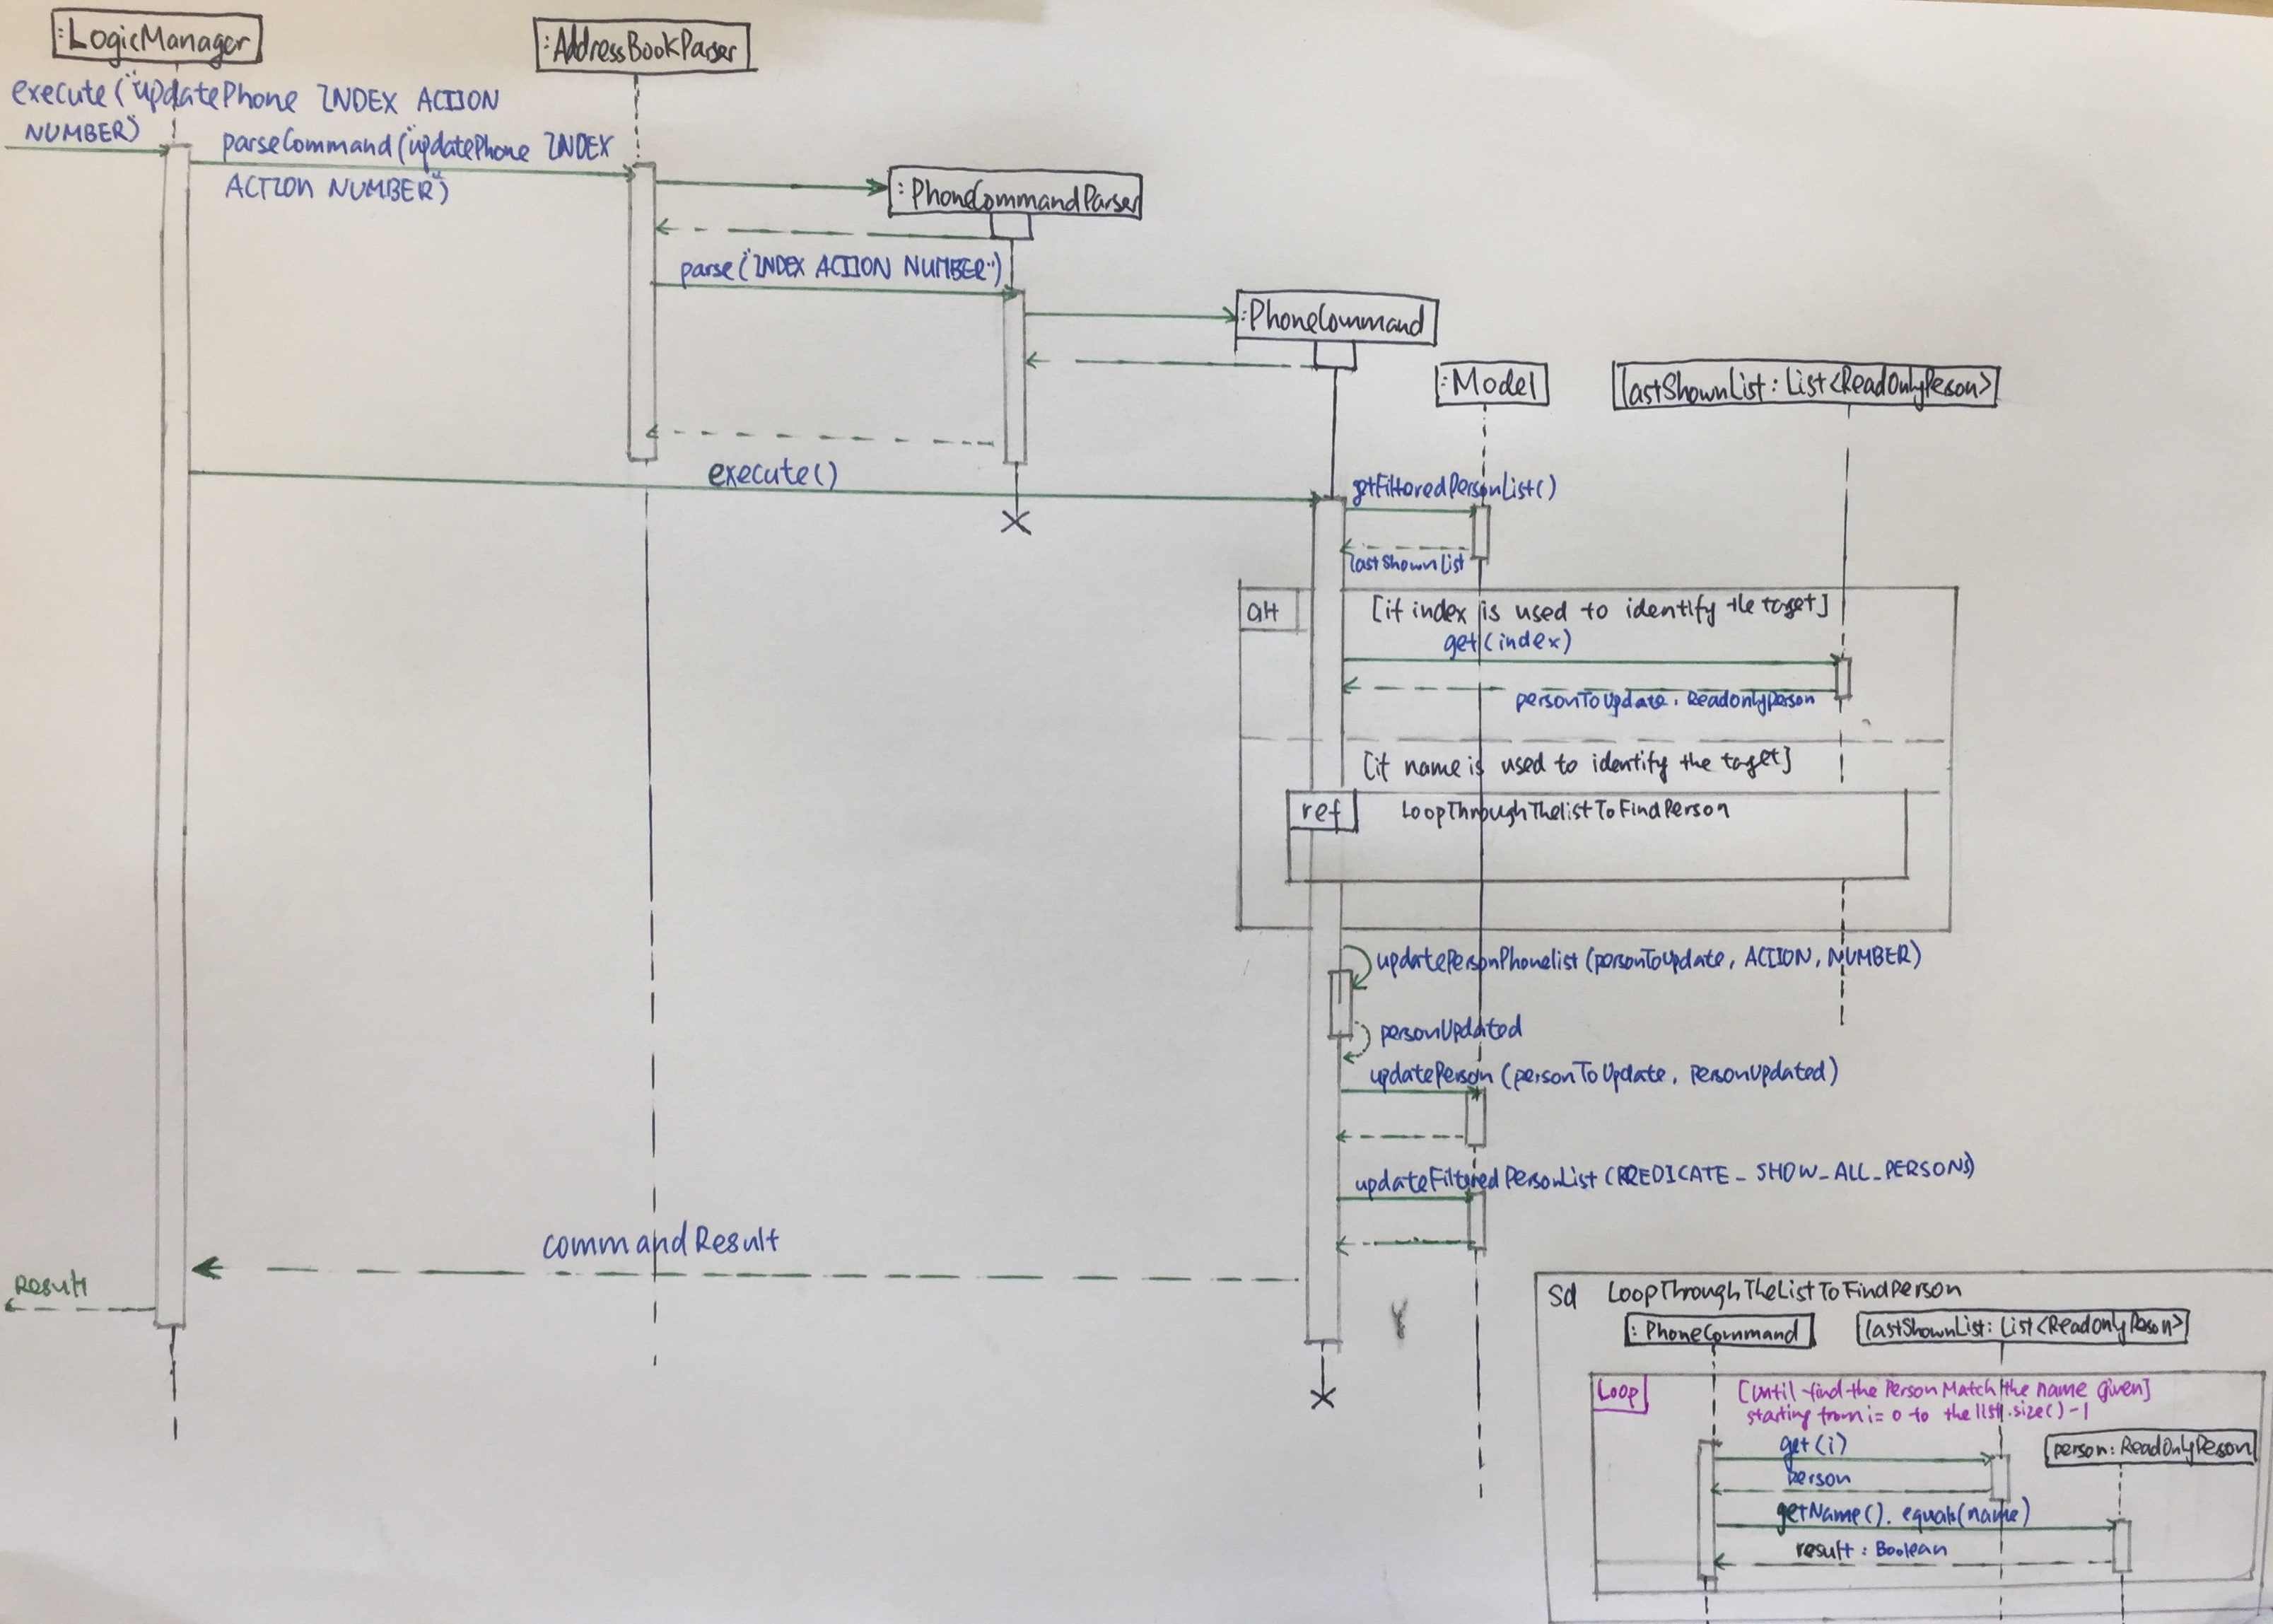 :LogicManager
:AddressBookParser
execute("updatePhone INDEX ACTION
NUMBER")
parseCommand("updatePhone INDEX
ACTION NUMBER")
:PhoneCommandParser
parse("INDEX ACTION NUMBER")
:PhoneCommand
:Model
lastShownList: List<ReadOnlyPerson>
execute()
getFilteredPersonList()
lastShownList
alt
[if index is used to identify the taget]
get(index)
personToUpdate: ReadOnlyPerson
[if name is used to identify the taget]
ref
LoopThroughThelistToFindPerson
updatePersonPhonelist (personToUpdate, ACTION, NUMBER)
personUpdated
updatePerson (personToUpdate, personUpdated)
updateFilteredPersonList (PREDICATE_SHOW_ALL_PERSONS)
commandResult
Result
Sd LoopThroughTheListToFindPerson
:PhoneCommand
lastShownList: List<ReadOnlyPerson>
Loop
[Until find the Person Match the name given]
starting from i= 0 to the list.size()-1
get(i)
person: ReadOnlyPerson
person
getName().equals(name)
result: Boolean